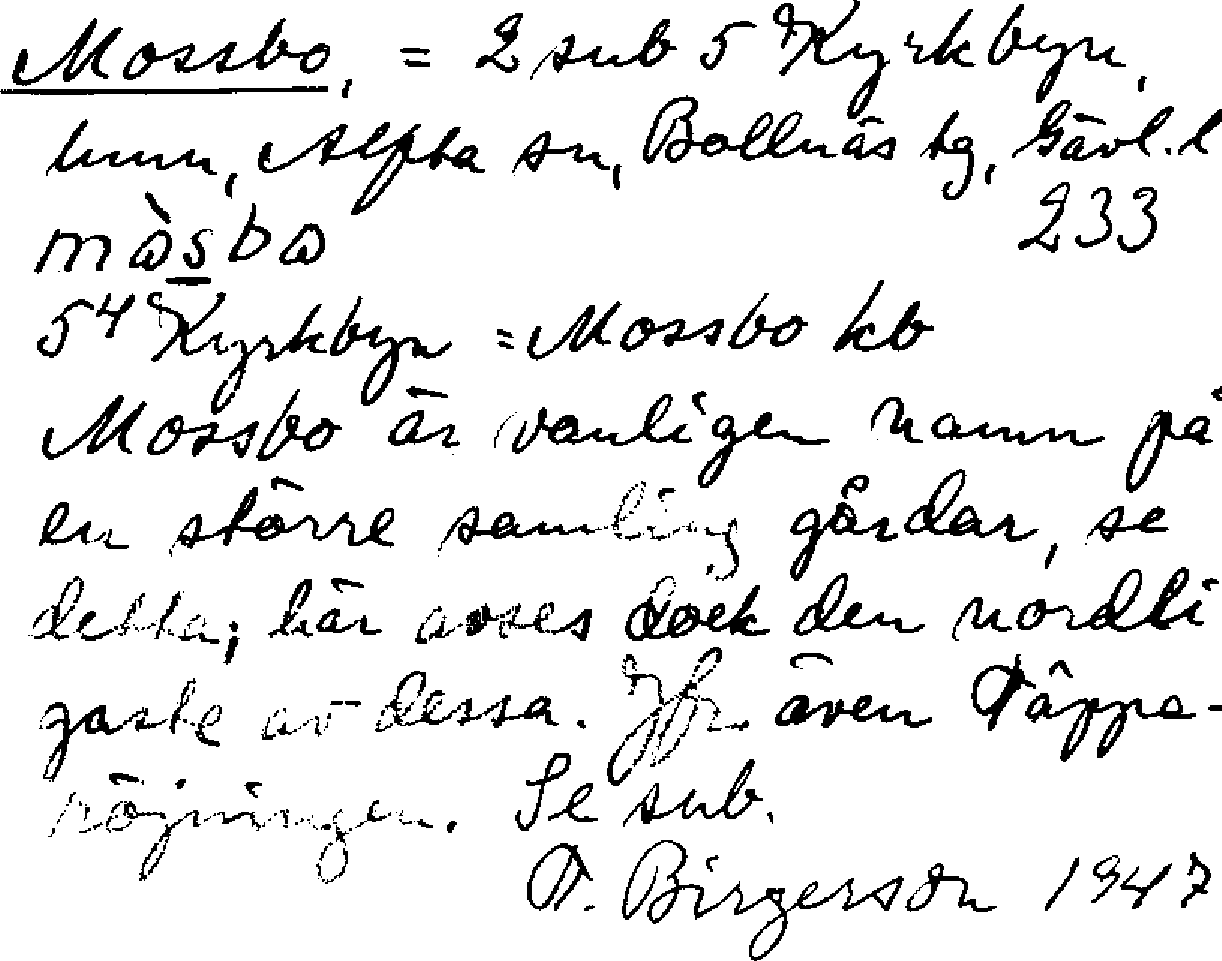 Mossbo, = 2 sub 5 Kyrkbyn,
hmn, Alfta sn, Bollnäs tg, Gävl. l
233
5⁴ Kyrkbyn = Mossbo kb
Mossbo är vanligen namn på
en större samling gårdar, se
detta; här avses dock den nordli
gaste av dessa. Jfr. även Täppe-
röjningen. Se sub.
T. Birgerson 1947